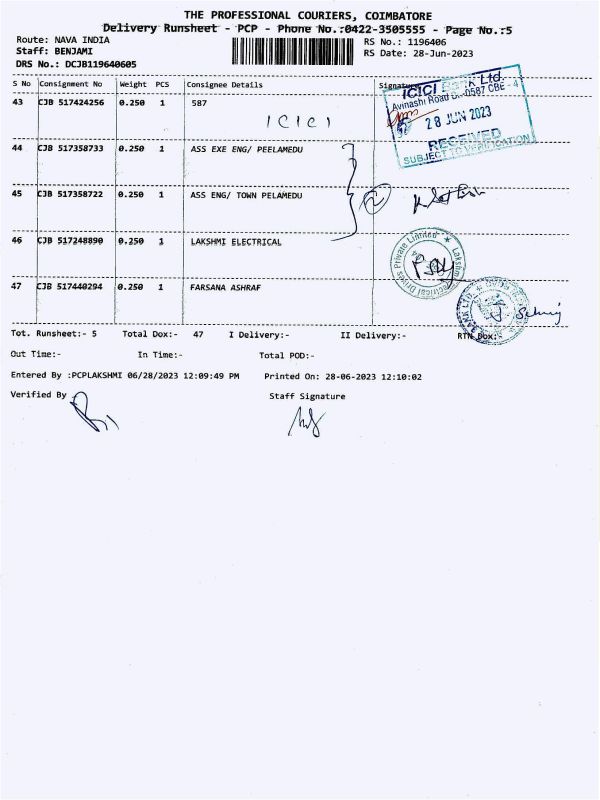 THE PROFESSIONAL COURIERS, COIMBATORE
Delivery Runsheet - PCP - Phone No.:0422-3505555 - Page No.:5
Route: NAVA INDIA
RS No.: 1196406
Staff: BENJAMI
RS Date: 28-Jun-2023
DRS No.: DCJB119640605
S No Consignment No Weight PCS Consignee Details Signature
43 CJB 517424256 0.250 1 587
ICICI
ICICI Bank Ltd.
Avinashi Road 0587 CBE - 4
28 JUN 2023
RECEIVED
SUBJECT TO VERIFICATION
44 CJB 517358733 0.250 1 ASS EXE ENG/ PEELAMEDU
45 CJB 517358722 0.250 1 ASS ENG/ TOWN PEELAMEDU
2
46 CJB 517248890 0.250 1 LAKSHMI ELECTRICAL
Lakshmi Electrical Drives Private Limited
47 CJB 517440294 0.250 1 FARSANA ASHRAF
BANK LTD.
Tot. Runsheet:- 5 Total Dox:- 47 I Delivery:- II Delivery:- RTN Dox:-
Out Time:- In Time:- Total POD:-
Entered By :PCPLAKSHMI 06/28/2023 12:09:49 PM Printed On: 28-06-2023 12:10:02
Verified By
Staff Signature